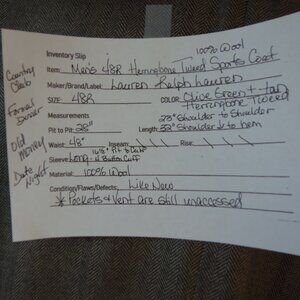 100% Wool
Inventory Slip
Item: Men's 48R Herringbone Tweed Sports Coat
Maker/Brand/Label: Lauren Ralph Lauren
SIZE: 48R COLOR: Olive Green + Tan
Herringbone Tweed
Measurements 23" Shoulder to Shoulder
Pit to Pit: 25" Length: 32" Shoulder to hem
Waist: 48" Inseam: Rise:
Sleeve: Long - 4 Button Cuff
Material: 100% Wool
Condition/Flaws/Defects: Like New
* Pockets & Vent are still unaccessed
Country
Club
Formal
Dinner
Old Money
Date
Night